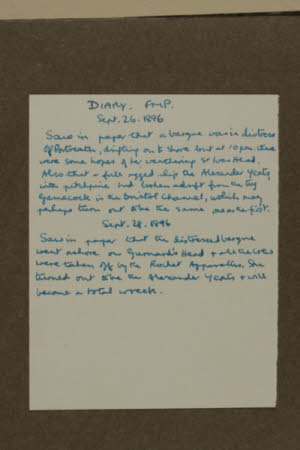 DIARY. FMP.
Sept. 26. 1896
Saw in paper that a barque was in distress
off Portreath, drifting on to shore but at 10pm. there
were some hopes of her weathering St Ives Head.
Also that a full rigged ship the Alexander Yeats
with pitchpine had broken adrift from the tug
Gamecock in the Bristol Channel, which may
perhaps turn out to be the same one as the first.
Sept. 28. 1896
Saw in paper that the distressed barque
went ashore on Gurnard's Head + all the crew
were taken off by the Rocket Apparatus. She
turned out to be the Alexander Yeats + will
become a total wreck.